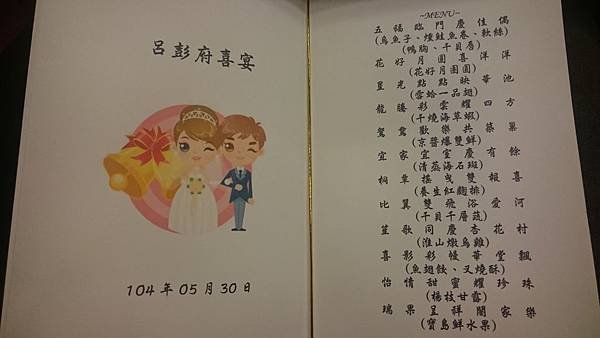 呂彭府喜宴
104年05月30日
~MENU~
五福臨門慶佳偶
(烏魚子、燻鮭魚卷、軟絲)
(鴨胸、干貝唇)
花好月圓喜洋洋
(花好月團圓)
星光點點映華池
(雪蛤一品翅)
龍騰彩雲耀四方
(干燒海草蝦)
鴛鴦歡樂共築巢
(京醬爆雙鮮)
宜家宜室慶有餘
(清蒸海石斑)
桐車搖曳雙報喜
(養生紅麴排)
比翼雙飛浴愛河
(干貝千層蔬)
笙歌同慶杏花村
(淮山燉烏雞)
喜影彩幔華堂飄
(魚翅餃、叉燒酥)
怡情甜蜜耀珍珠
(楊枝甘露)
瑞果呈祥闔家樂
(寶島鮮水果)